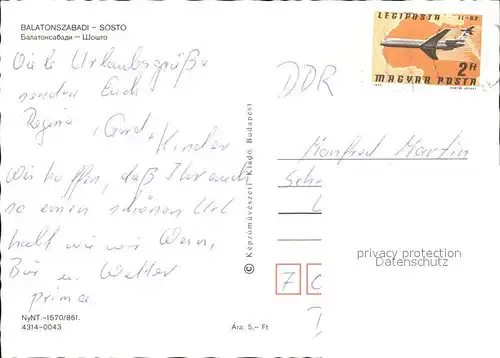 BALATONSZABADI – SOSTO
Балатонсабади – Шошто
Viele Urlaubsgrüße
senden Euch
Regina, Gerd + Kinder
Wir hoffen, daß Ihr auch
so einen schönen Url
habt wie wir. Wein,
Bier u. Wetter
prima.
NyNT.–1570/861.
4314-0043
Ára: 5,– Ft
© Képzőművészeti Kiadó, Budapest
LEGIPOSTA
2 Ft
MAGYAR POSTA
DDR
Manfred Martin
Sch
7
privacy protection
Datenschutz